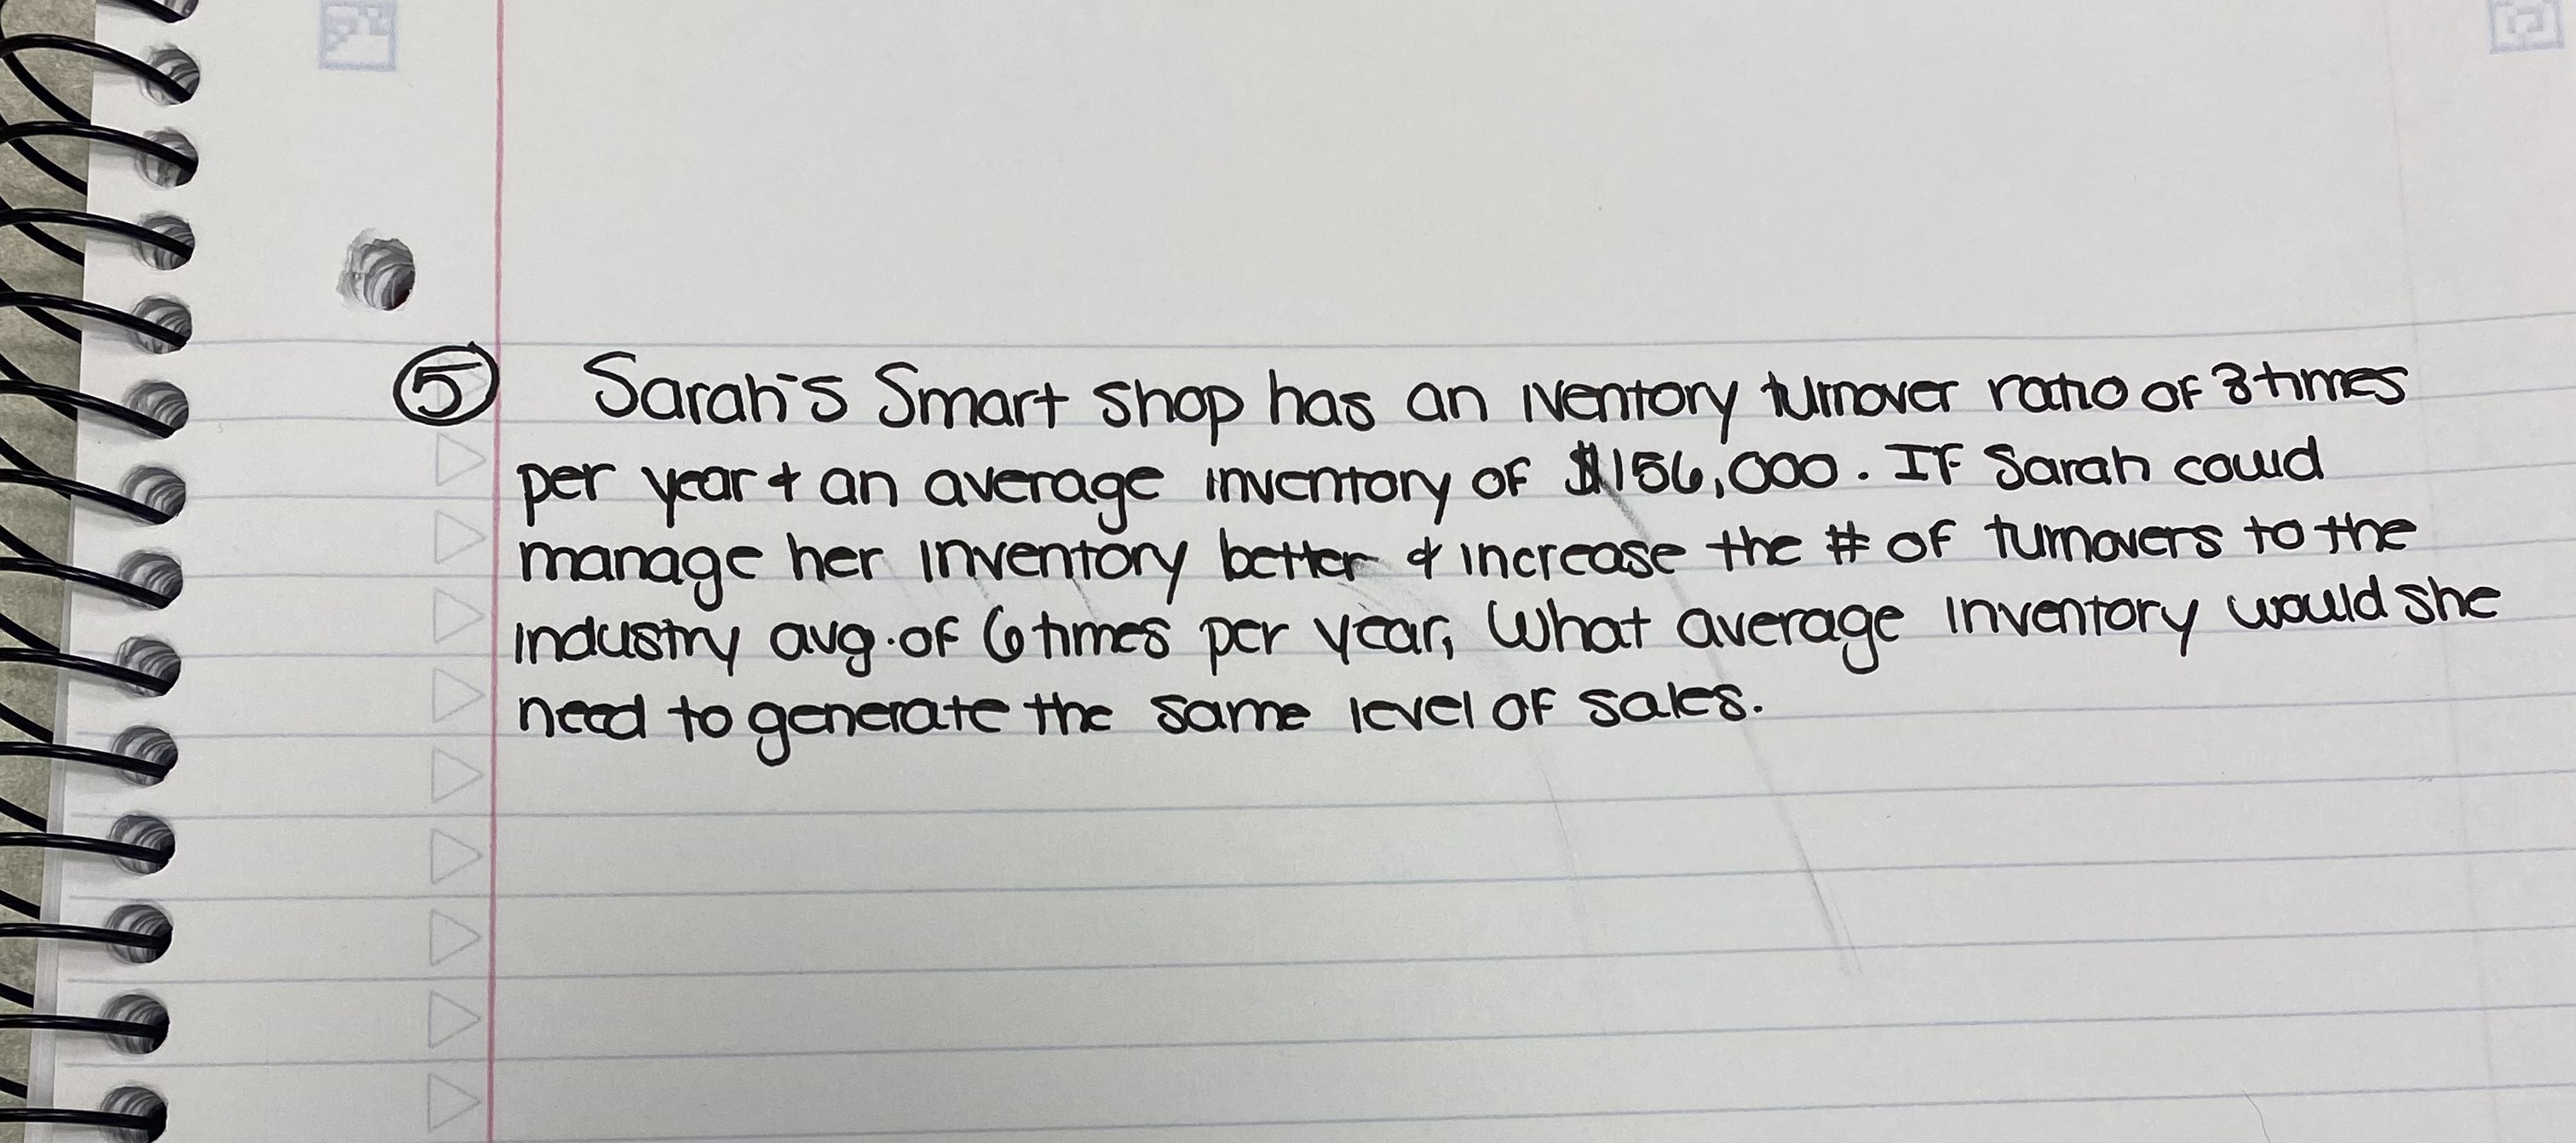 ⑤ Sarah's Smart shop has an iventory turnover ratio of 3 times
per year & an average inventory of $156,000. If Sarah could
manage her inventory better & increase the # of turnovers to the
industry avg. of 6 times per year, What average inventory would she
need to generate the same level of sales.